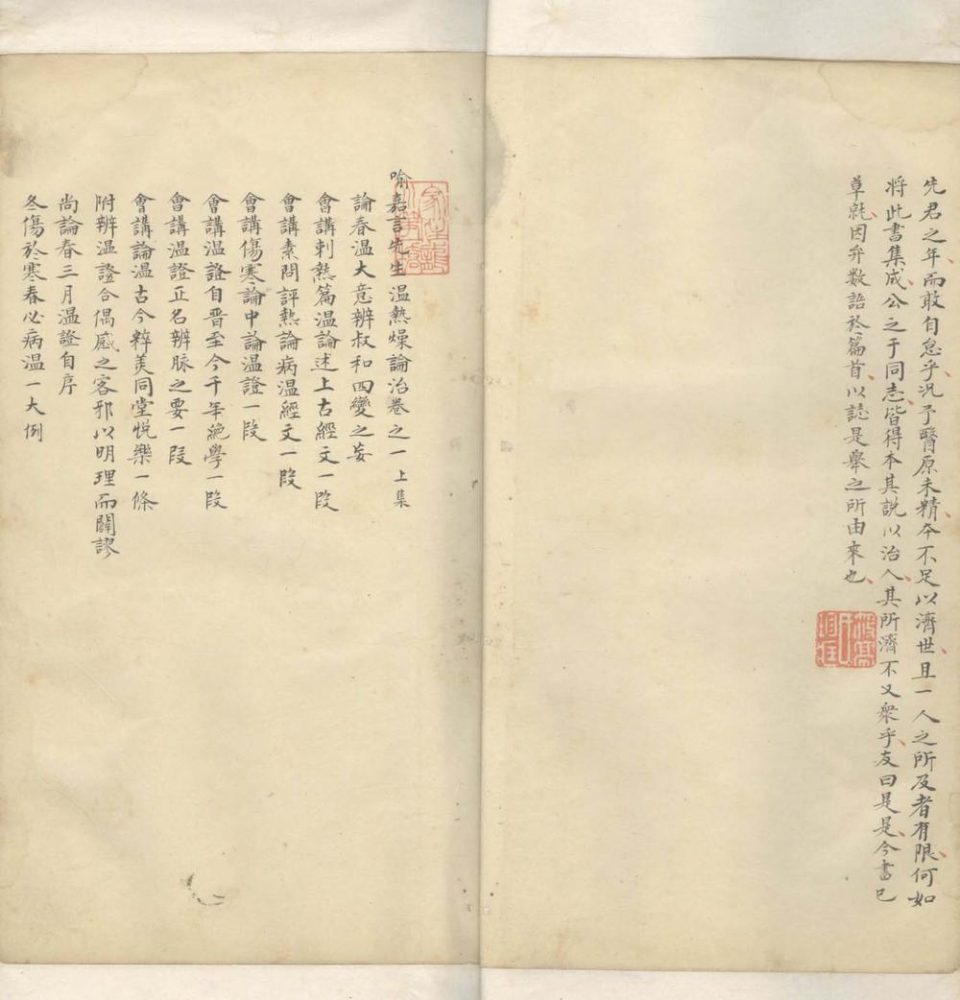 先君之年而敢自怠乎況予醫原未精本不足以濟世且一人之所及者有限何如
將此書集成公之于同志皆得本其說以治人其所濟不又衆乎友曰是是今書已
草就因弁數語於篇首以誌是舉之所由來也
喻嘉言先生溫熱燥論治卷之一上集
論春溫大意辨叔和四變之妄
會講刺熱篇溫論述上古經文一段
會講素問評熱論病溫經文一段
會講傷寒論中論溫證一段
會講溫證自晉至今千年絕學一段
會講溫證正名辨脉之要一段
會講論溫古今粹美同堂悅樂一條
附辨溫證合偶感之客邪以明理而闢謬
尚論春三月溫證自序
冬傷於寒春必病溫一大例